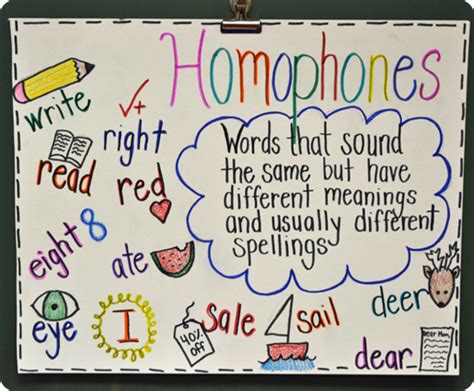 Homophones
write
✓+
right
Words that sound
the same but have
different meanings
and usually different
spellings
read
red
eight 8
ate
eye
I
40% off
sale
sail
deer
dear
Dear Mom,